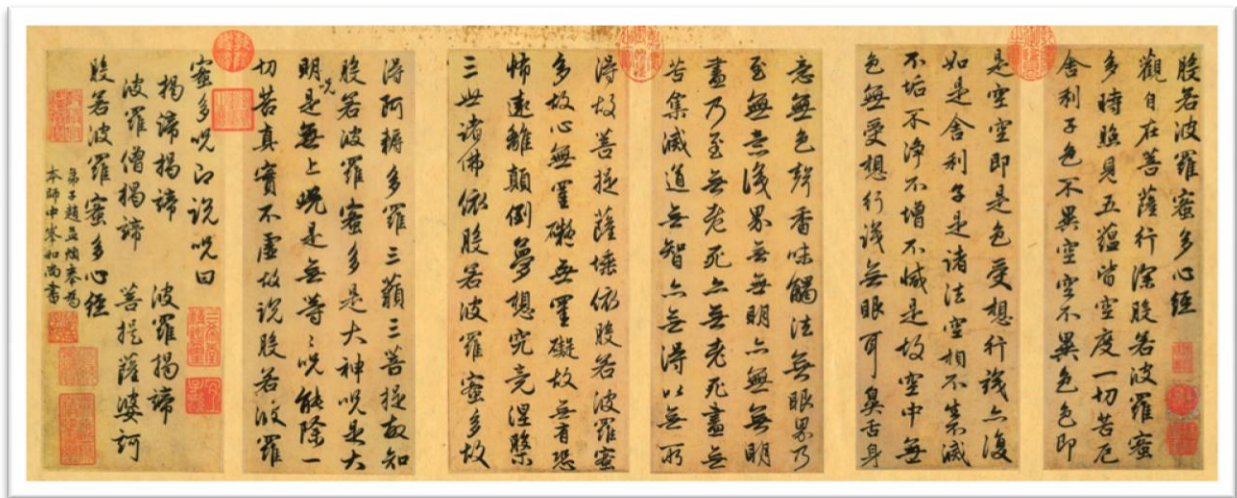 般若波羅蜜多心經
觀自在菩薩行深般若波羅蜜
多時照見五蘊皆空度一切苦厄
舍利子色不異空空不異色色即
是空空即是色受想行識亦復
如是舍利子是諸法空相不生滅
不垢不淨不增不減是故空中無
色無受想行識無眼耳鼻舌身
意無色聲香味觸法無眼界乃
至無意識界無無明亦無無明
盡乃至無老死亦無老死盡無
苦集滅道無智亦無得以無所
得故菩提薩埵依般若波羅蜜
多故心無罣礙無罣礙故無有恐
怖遠離顛倒夢想究竟涅槃
三世諸佛依般若波羅蜜多故
得阿耨多羅三藐三菩提故知
般若波羅蜜多是大神咒是大
明咒是無上咒是無等〻咒能除一
切苦真實不虛故說般若波羅
蜜多咒即說咒曰
揭諦揭諦 波羅揭諦
波羅僧揭諦 菩提薩婆訶
般若波羅蜜多心經
弟子趙孟頫奉為
本師中峯和尚書